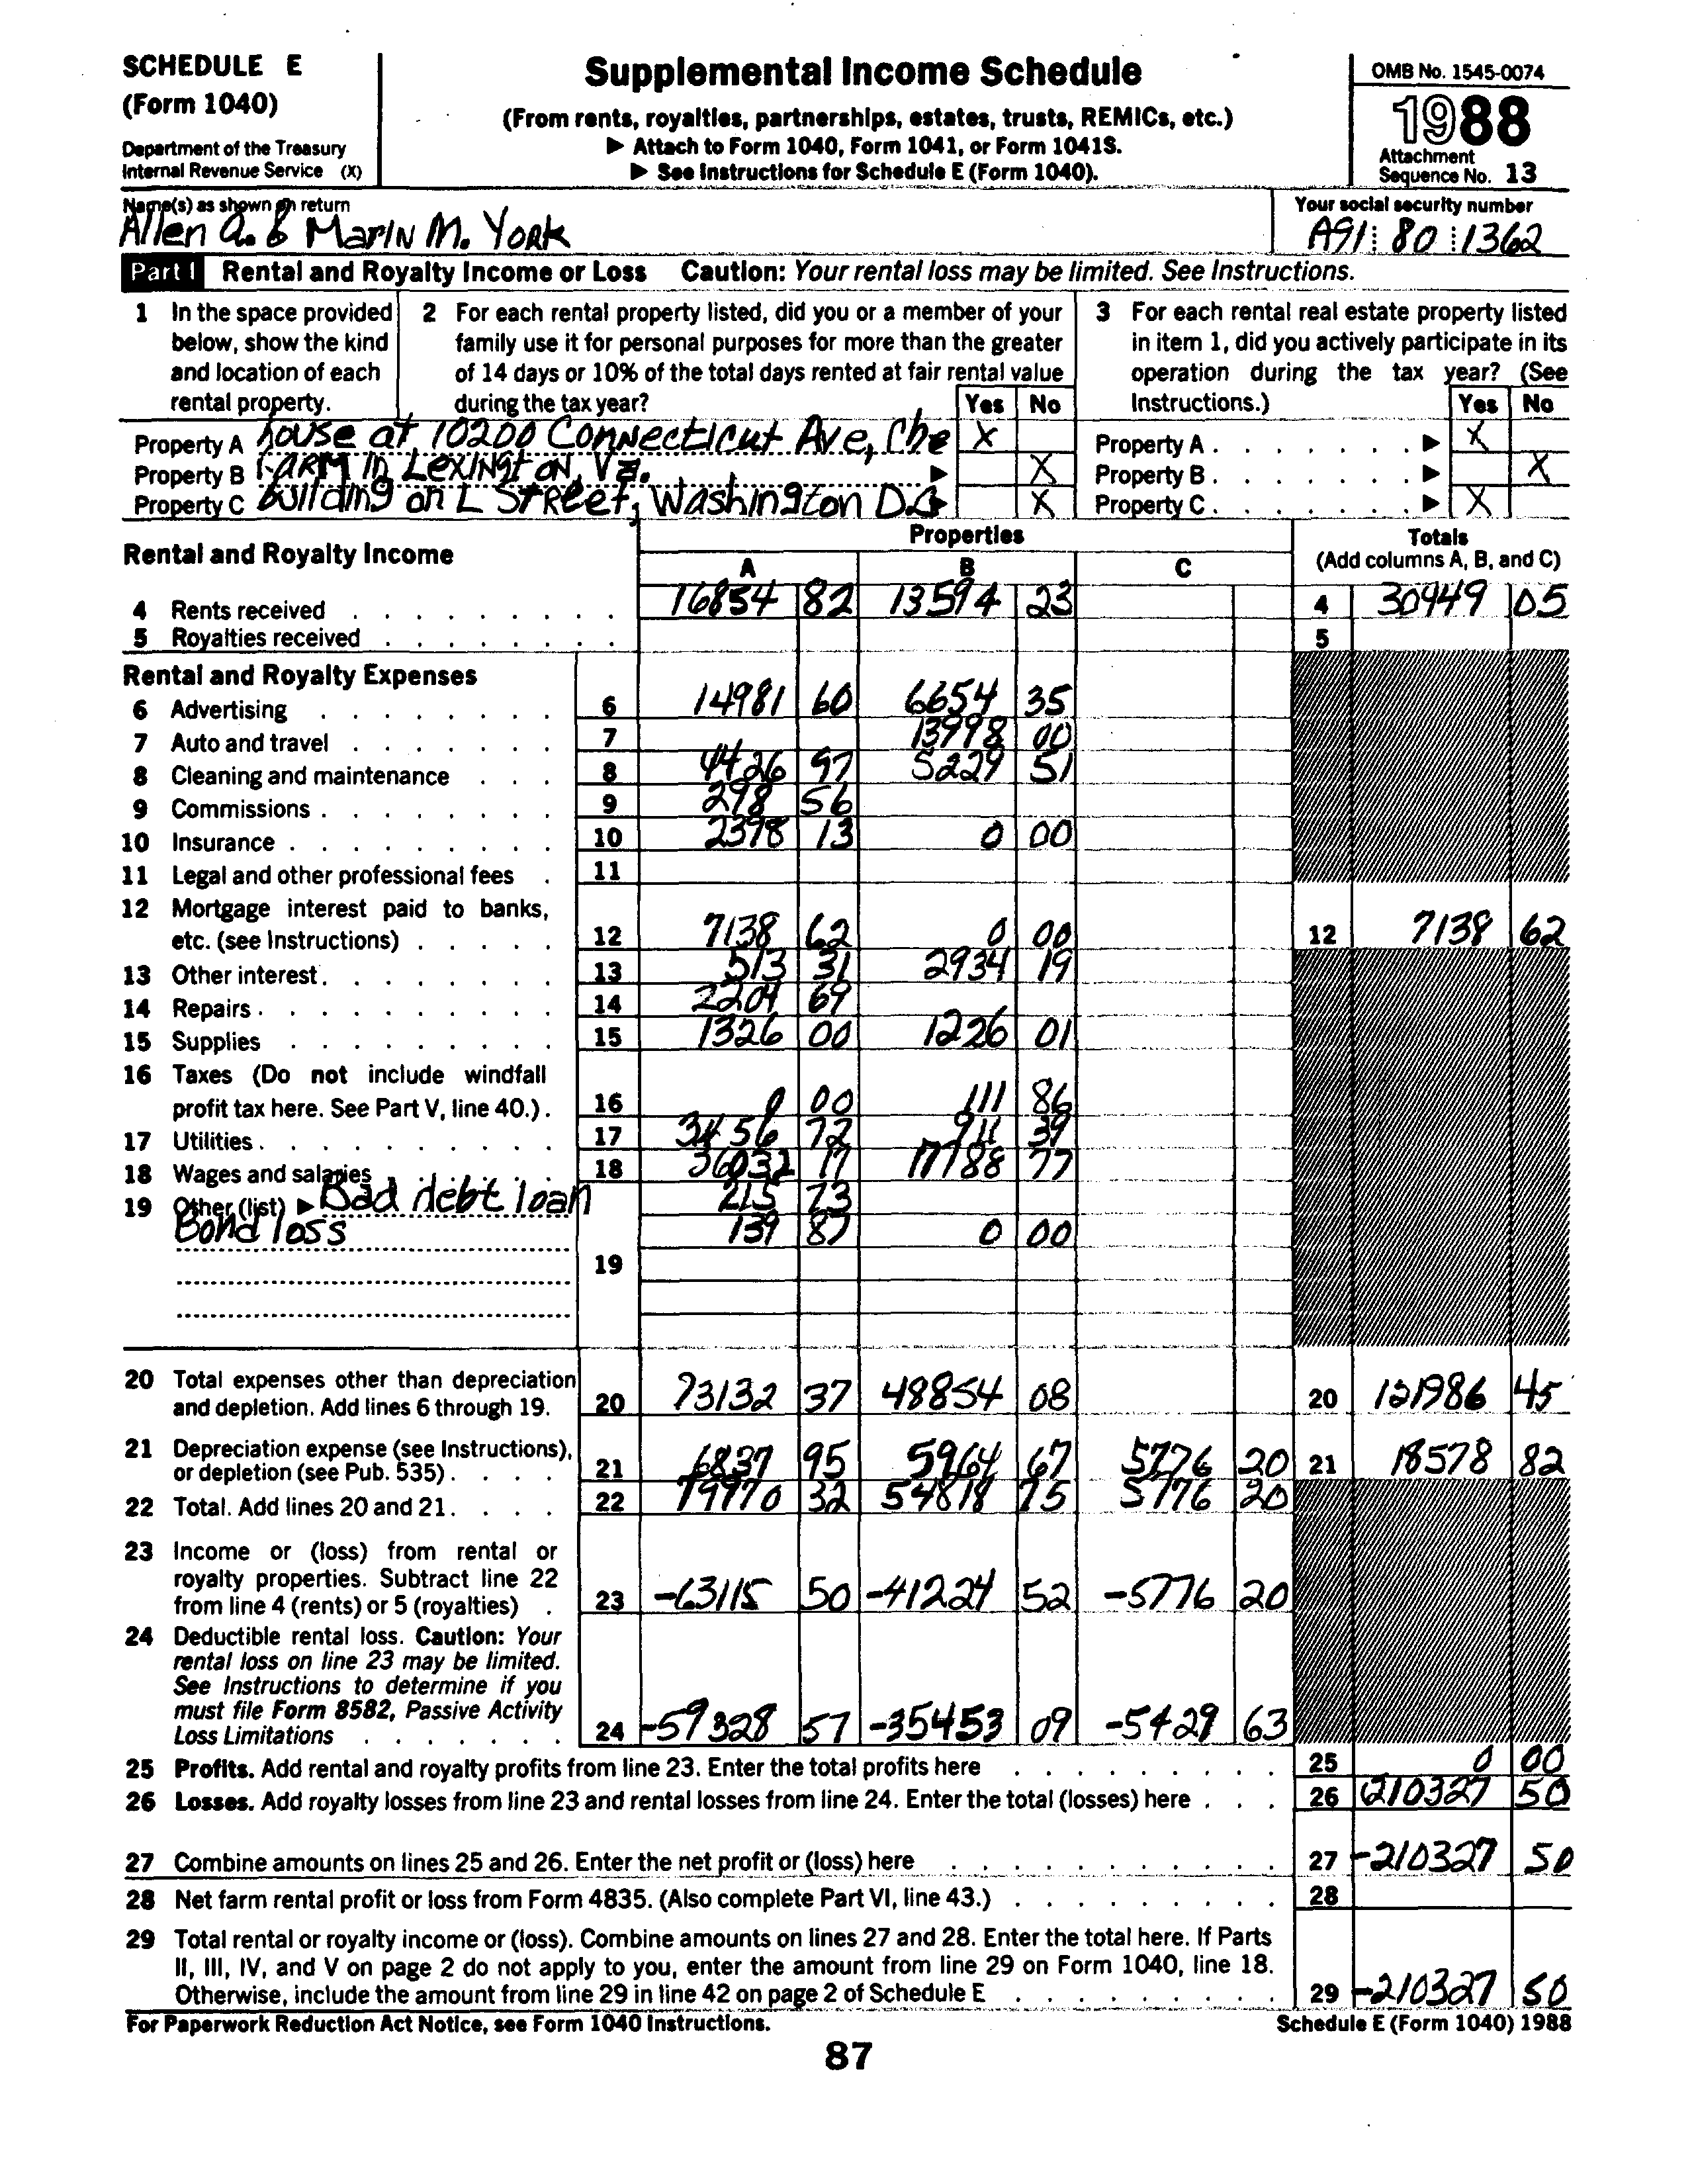 SCHEDULE E
(Form 1040)
Department of the Treasury
Internal Revenue Service (X)
Supplemental Income Schedule
(From rents, royalties, partnerships, estates, trusts, REMICs, etc.)
▶ Attach to Form 1040, Form 1041, or Form 1041S.
▶ See Instructions for Schedule E (Form 1040).
OMB No. 1545-0074
1988
Attachment
Sequence No. 13
Name(s) as shown on return
Allen A. & Marin M. York
Your social security number
A91 80 1362
Part I Rental and Royalty Income or Loss Caution: Your rental loss may be limited. See Instructions.
1 In the space provided below, show the kind and location of each rental property.
2 For each rental property listed, did you or a member of your family use it for personal purposes for more than the greater of 14 days or 10% of the total days rented at fair rental value during the tax year? Yes No
3 For each rental real estate property listed in item 1, did you actively participate in its operation during the tax year? (See Instructions.) Yes No
Property A house at 10200 Connecticut Ave, Che X
Property A . . . . . . . ▶ X
Property B FARM in Lexington, Va. ▶ X
Property B . . . . . . . ▶ X
Property C building on L Street, Washington D.C ▶ X
Property C . . . . . . . ▶ X
Rental and Royalty Income
Properties
A B C
Totals
(Add columns A, B, and C)
4 Rents received 16854 82 13594 23 4 30449 05
5 Royalties received 5
Rental and Royalty Expenses
6 Advertising 6 14981 60 6654 35
7 Auto and travel 7 13998 00
8 Cleaning and maintenance 8 4426 97 5229 51
9 Commissions 9 298 56
10 Insurance 10 2398 13 0 00
11 Legal and other professional fees 11
12 Mortgage interest paid to banks,
etc. (see Instructions) 12 7138 62 0 00 12 7138 62
13 Other interest 13 513 31 2934 19
14 Repairs 14 2204 69
15 Supplies 15 1326 00 1226 01
16 Taxes (Do not include windfall
profit tax here. See Part V, line 40.) 16 0 00 111 86
17 Utilities 17 3456 72 911 39
18 Wages and salaries 18 36032 17 17788 77
19 Other (list) ▶ Bad debt loan 215 73
Bond loss 139 87 0 00
19
20 Total expenses other than depreciation
and depletion. Add lines 6 through 19. 20 73132 37 48854 08 20 121986 45
21 Depreciation expense (see Instructions),
or depletion (see Pub. 535) 21 6837 95 5964 67 5776 20 21 18578 82
22 Total. Add lines 20 and 21 22 79970 32 54818 75 5776 20
23 Income or (loss) from rental or
royalty properties. Subtract line 22
from line 4 (rents) or 5 (royalties) 23 -63115 50 -41224 52 -5776 20
24 Deductible rental loss. Caution: Your
rental loss on line 23 may be limited.
See Instructions to determine if you
must file Form 8582, Passive Activity
Loss Limitations 24 -59328 57 -35453 09 -5429 63
25 Profits. Add rental and royalty profits from line 23. Enter the total profits here 25 0 00
26 Losses. Add royalty losses from line 23 and rental losses from line 24. Enter the total (losses) here 26 (210327 50
27 Combine amounts on lines 25 and 26. Enter the net profit or (loss) here 27 -210327 50
28 Net farm rental profit or loss from Form 4835. (Also complete Part VI, line 43.) 28
29 Total rental or royalty income or (loss). Combine amounts on lines 27 and 28. Enter the total here. If Parts
II, III, IV, and V on page 2 do not apply to you, enter the amount from line 29 on Form 1040, line 18.
Otherwise, include the amount from line 29 in line 42 on page 2 of Schedule E 29 -210327 50
For Paperwork Reduction Act Notice, see Form 1040 Instructions.
Schedule E (Form 1040) 1988
87